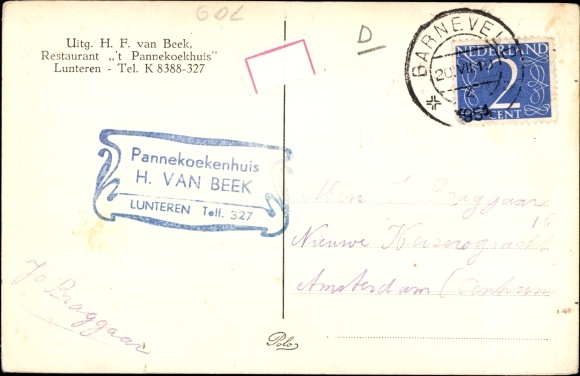 GOL
D
Uitg. H. F. van Beek.
Restaurant „'t Pannekoekhuis"
Lunteren - Tel. K 8388-327
BARNEVEL
20.VII.
1954
NEDERLAND
2
CENT
Pannekoekenhuis
H. VAN BEEK
LUNTEREN Telf. 327
Braggaar
Nieuwe Keizersgracht
Amsterdam (Centrum
Jo Braggaar
Polo